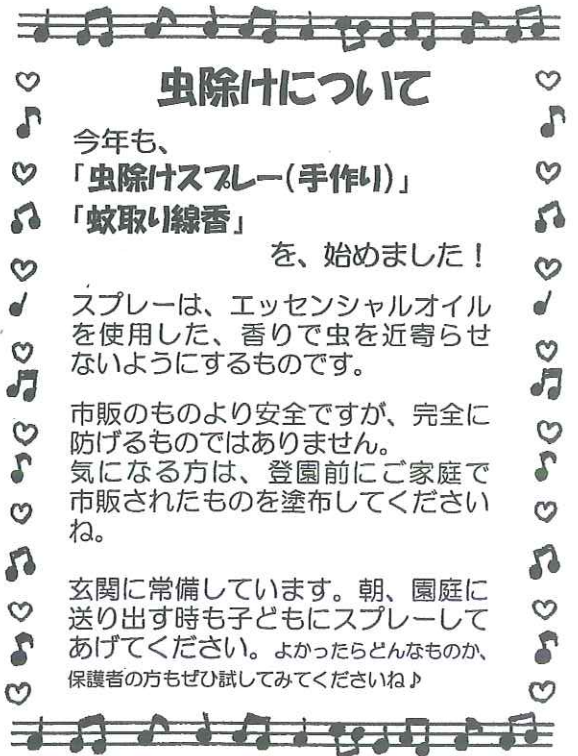 虫除けについて
今年も、
「虫除けスプレー(手作り)」
「蚊取り線香」
を、始めました！
スプレーは、エッセンシャルオイル
を使用した、香りで虫を近寄らせ
ないようにするものです。
市販のものより安全ですが、完全に
防げるものではありません。
気になる方は、登園前にご家庭で
市販されたものを塗布してください
ね。
玄関に常備しています。朝、園庭に
送り出す時も子どもにスプレーして
あげてください。よかったらどんなものか、
保護者の方もぜひ試してみてくださいね♪